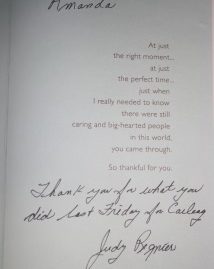 Amanda
At just
the right moment..
at just
the perfect time..
just when
I really needed to know
there were still
caring and big-hearted people
in this world,
you came through.
So thankful for you.
Thank you for what you
did last Friday for
Judy